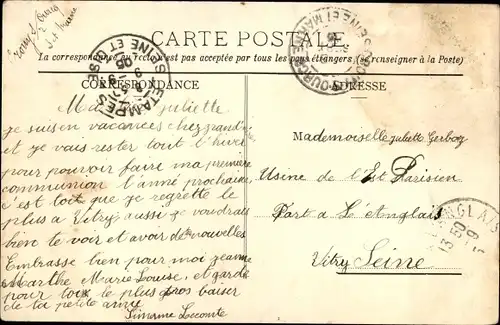 CARTE POSTALE
La correspondance au recto n'est pas acceptée par tous les pays étrangers (se renseigner à la Poste)
CORRESPONDANCE
ETAMPES
SEINE ET OISE
Ma juliette
je suis en vacances chez grand'
et je vais rester tout l'hiver
pour pouvoir faire ma premiere
communion l'année prochaine
c'est toit que je regrette le
plus a Vitry aussi je voudrais
bien te voir et avoir de nouvelles
Embrasse bien pour moi jeanne
Marthe Marie Louise, et garde
pour toi le plus gros baiser
de ta petite amie
Simonne Lecomte
ADRESSE
SEINE ET MARNE
Mademoiselle juliette
Usine de l'Est Parisien
Port a L'Anglais
Vitry Seine
ANGLAIS
13 50
9